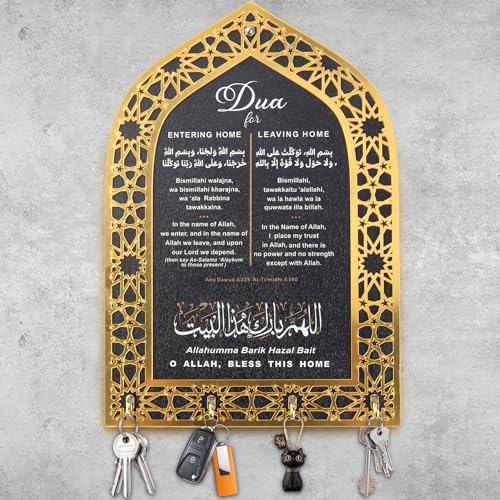 Dua
for
ENTERING HOME
بِسْمِ اللَّهِ وَلَجْنَا، وَبِسْمِ اللَّهِ
خَرَجْنَا، وَعَلَى اللَّهِ رَبِّنَا تَوَكَّلْنَا
Bismillahi walajna,
wa bismillahi kharajna,
wa 'ala Rabbina
tawakkalna.
In the name of Allah,
we enter, and in the name of
Allah we leave, and upon
our Lord we depend.
(then say As-Salamu 'Alaykum
to those present)
LEAVING HOME
بِسْمِ اللَّهِ، تَوَكَّلْتُ عَلَى اللَّهِ
، وَلَا حَوْلَ وَلَا قُوَّةَ إِلَّا بِاللَّهِ
Bismillahi,
tawakkaltu 'alallahi,
wa la hawla wa la
quwwata illa billah.
In the Name of Allah,
I place my trust
in Allah, and there is
no power and no strength
except with Allah.
Abu Dawud 4/325 At-Tirmidhi 5/490
اللهم بارك هذا البيت
Allahumma Barik Hazal Bait
O ALLAH, BLESS THIS HOME